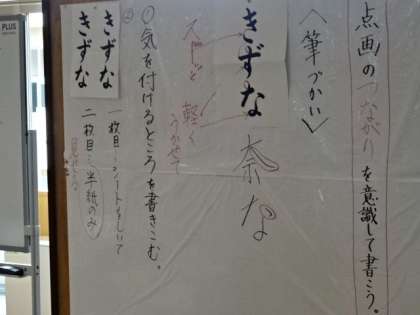 点画のつながりを意識して書こう。
〈筆づかい〉
きずな
奈な
軽く
うかせて
○気を付けるところを書きこむ。
②
きずな
きずな
一枚目…シートをしいて
二枚目…半紙のみ
PLUS